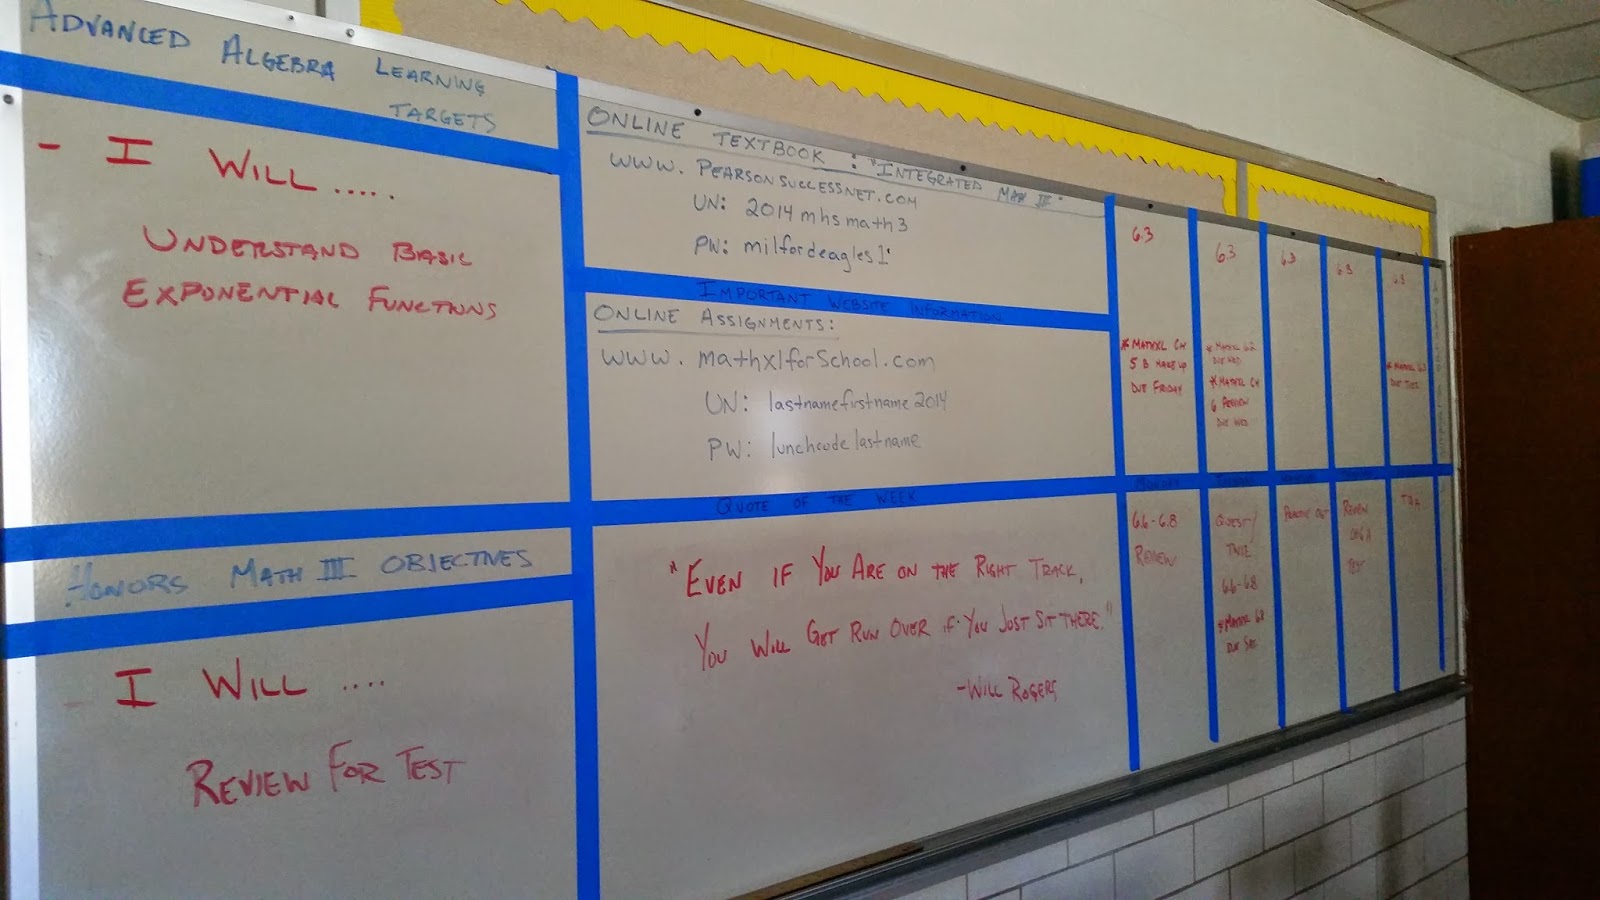 ADVANCED ALGEBRA LEARNING
TARGETS
- I WILL .....
UNDERSTAND BASIC
EXPONENTIAL FUNCTIONS
HONORS MATH III OBJECTIVES
- I WILL ....
REVIEW FOR TEST
ONLINE TEXTBOOK : "INTEGRATED
MATH III"
WWW. PEARSONSUCCESSNET.COM
UN: 2014mhsmath3
PW: milfordeagles1
IMPORTANT WEBSITE INFORMATION
ONLINE ASSIGNMENTS:
WWW. mathxlforSchool.com
UN: lastnamefirstname2014
PW: lunchcodelastname
QUOTE OF THE WEEK
"EVEN IF YOU ARE ON THE RIGHT TRACK,
YOU WILL GET RUN OVER IF YOU JUST SIT THERE."
-WILL ROGERS
6.3
* MATHXL CH
5 B MAKE UP
DUE FRIDAY
MONDAY
6.6-6.8
REVIEW
6.3
* MATHXL 6.2
DUE WED
* MATHXL CH
6 REVIEW
DUE WED
TUESDAY
QUEST/
6.6-6.8
6.8
DUE
6.3
6.3
REVIEW
TEST
6.3
* MATHXL 6.3
DUE TUES